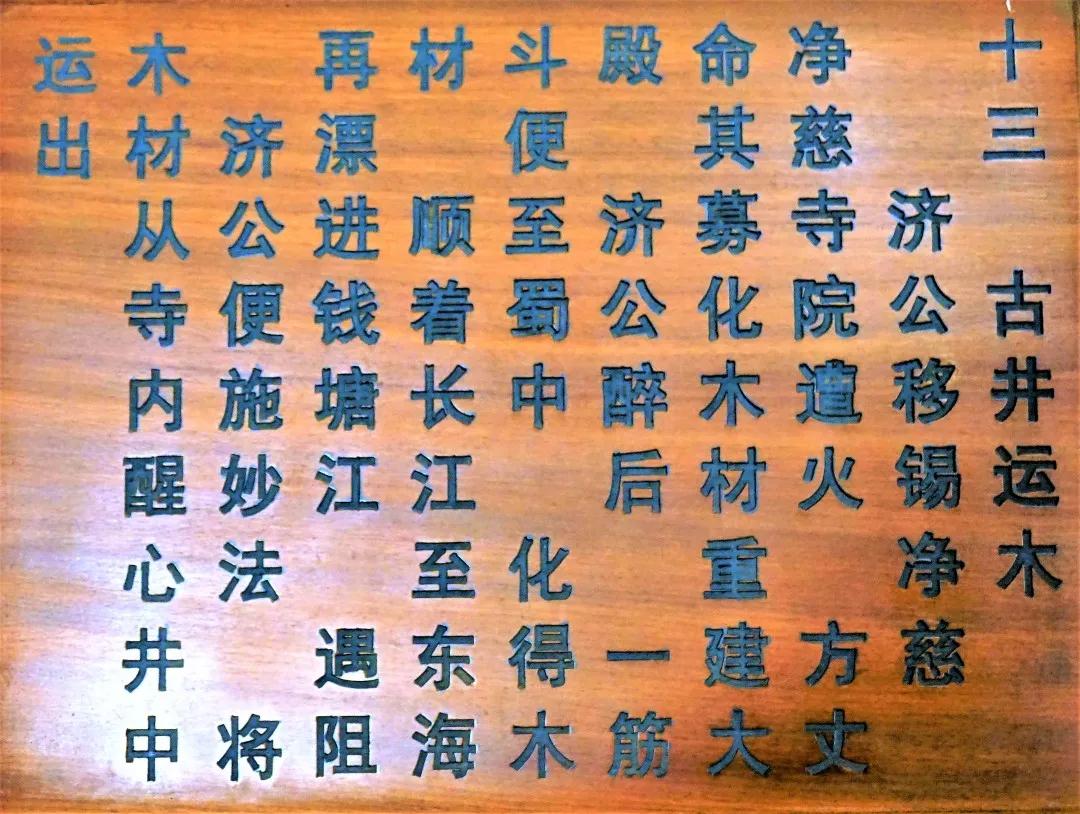 十三 古井运木
济公移锡净慈
净慈寺院遭火 方丈
命其募化木材重建大
殿 济公醉后 一筋
斗便至蜀中 化得木
材 顺着长江至东海
再漂进钱塘江 遇阻
济公便施妙法 将
木材从寺内醒心井中
运出